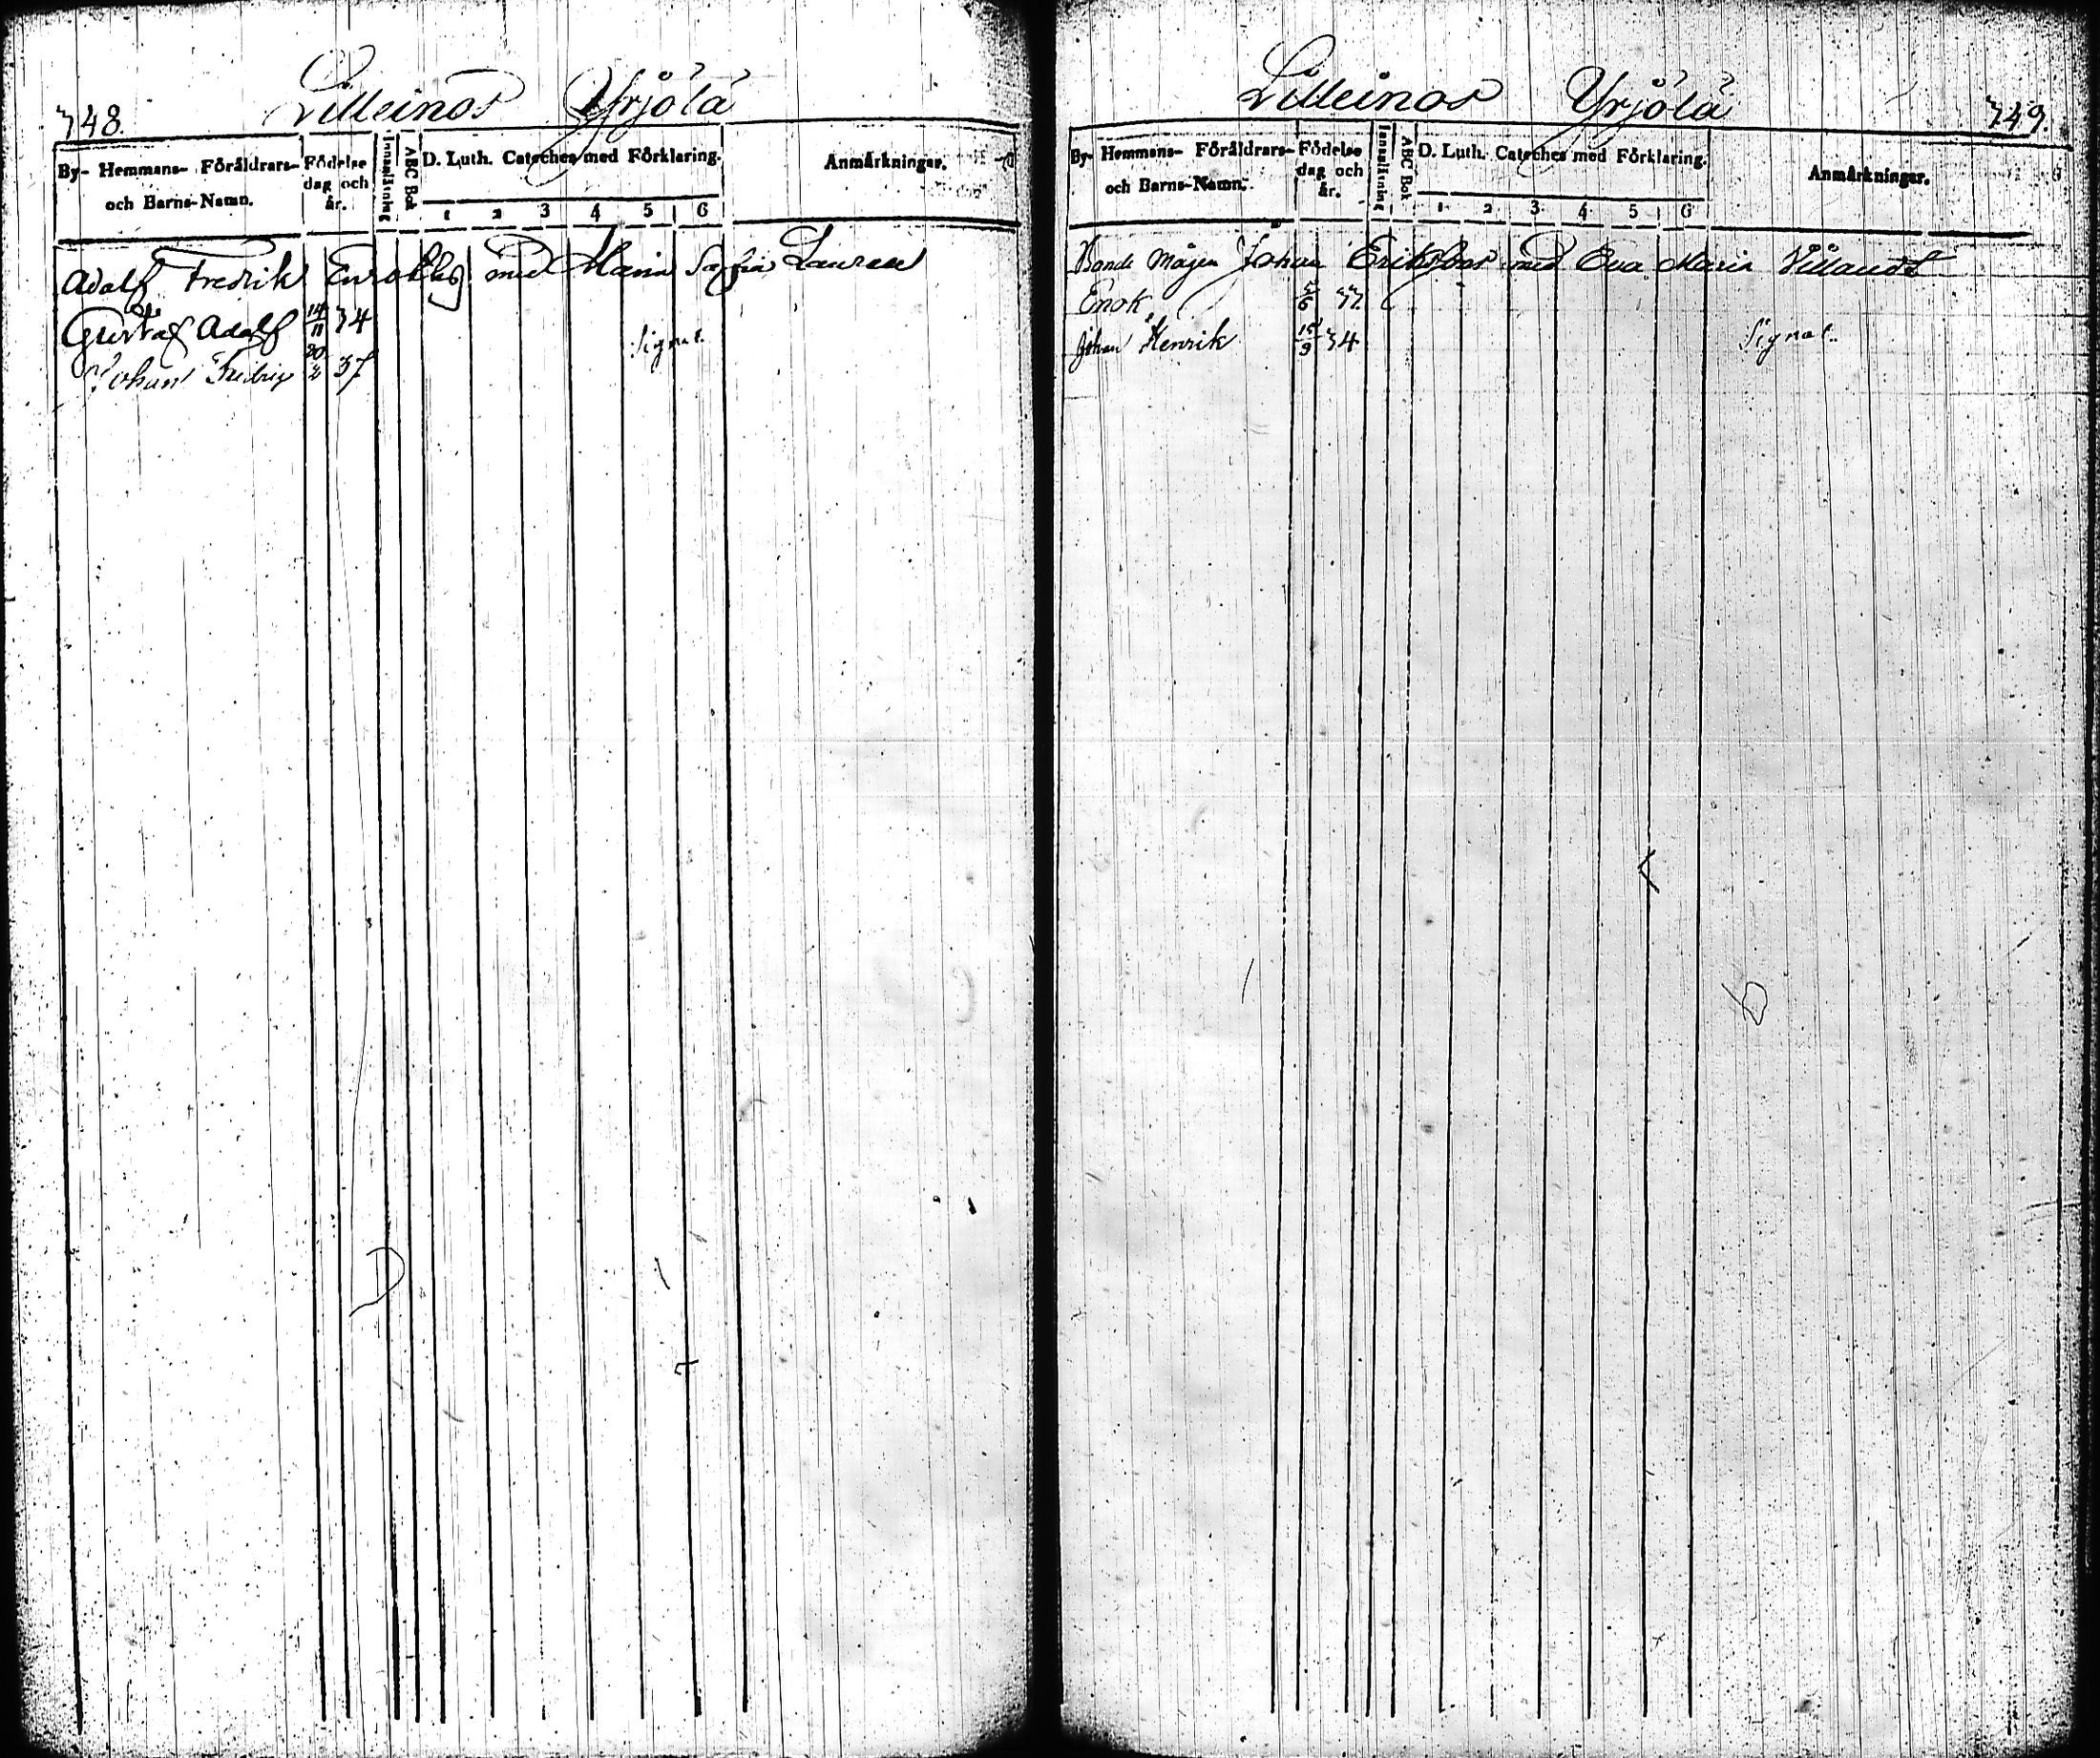 748.
Lilleinos Yrjölä
By- Hemmans- Föräldrars-
och Barns-Namn.
Födelse
dag och
år.
Innanläsning
ABC Bok
D. Luth. Cateches med Förklaring.
1 2 3 4 5 6
Anmärkningar.
Adolf Fredrik med Maria Sofia Lauren
Gustaf Adolf 14/11 34
Signat.
Johan Fredrig 20/2 37
Lilleinos Yrjölä
749.
By- Hemmans- Föräldrars-
och Barns-Namn.
Födelse
dag och
år.
Innanläsning
ABC Bok
D. Luth. Cateches med Förklaring.
1 2 3 4 5 6
Anmärkningar.
Bonde Mågen Johan Eriksson med Eva Maria
Enok
Johan Henrik 15/9 34
Signat.